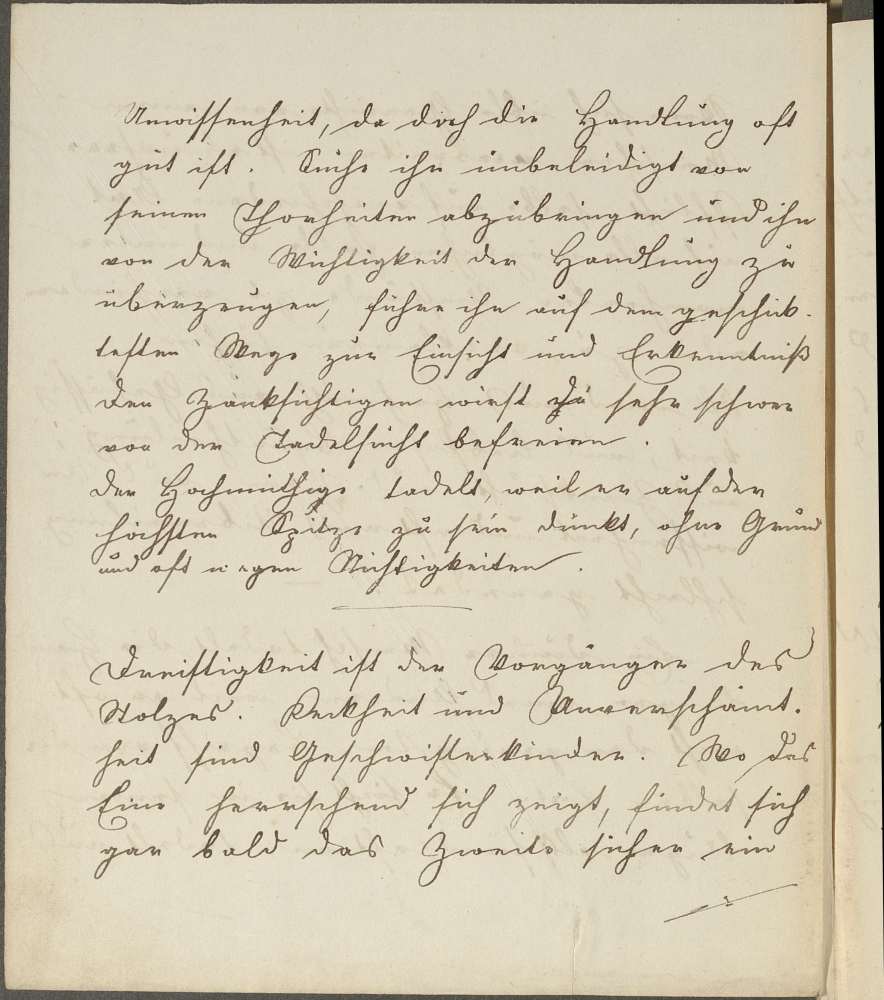 Unwissenheit, da doch die Handlung oft
gut ist. Suche ihn unbeleidigt von
seinen Thorheiten abzubringen und ihn
von der Wichtigkeit der Handlung zu
überzeugen, führe ihn auf dem geschick-
testen Wege zur Einsicht und Erkenntniß
Den Zanksichtigen wirst Du sehr schwer
von der Tadelsucht befreien.
Der Hochmüthige tadelt, weil er auf der
höchsten Spitze zu sein dünkt, ohne Grund
und oft wegen Nichtigkeiten.
Dreistigkeit ist der Vorgänger des
Stolzes. Keckheit und Unverschämt-
heit sind Geschwisterkinder. Wo das
Eine herrschend sich zeigt, findet sich
gar bald das Zweite sicher ein